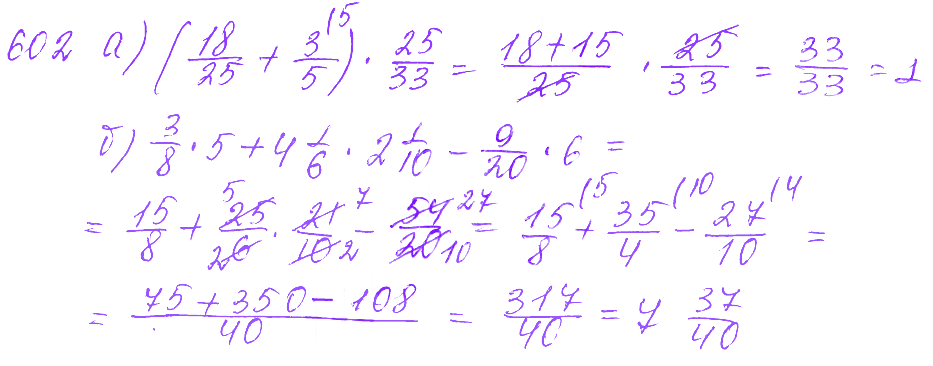 602 а) (18/25 + 3/5 (5) · 25/33 = (18+15)/25 · 25/33 = 33/33 = 1
б) 3/8 · 5 + 4 1/6 · 2 1/10 − 9/20 · 6 =
= 15/8 + 25 5/6 2 · 21 7/10 2 − 54 27/20 10 = 15/8 (5 + 35/4 (10 − 27/10 (4 =
= (75 + 350 − 108)/40 = 317/40 = 7 37/40